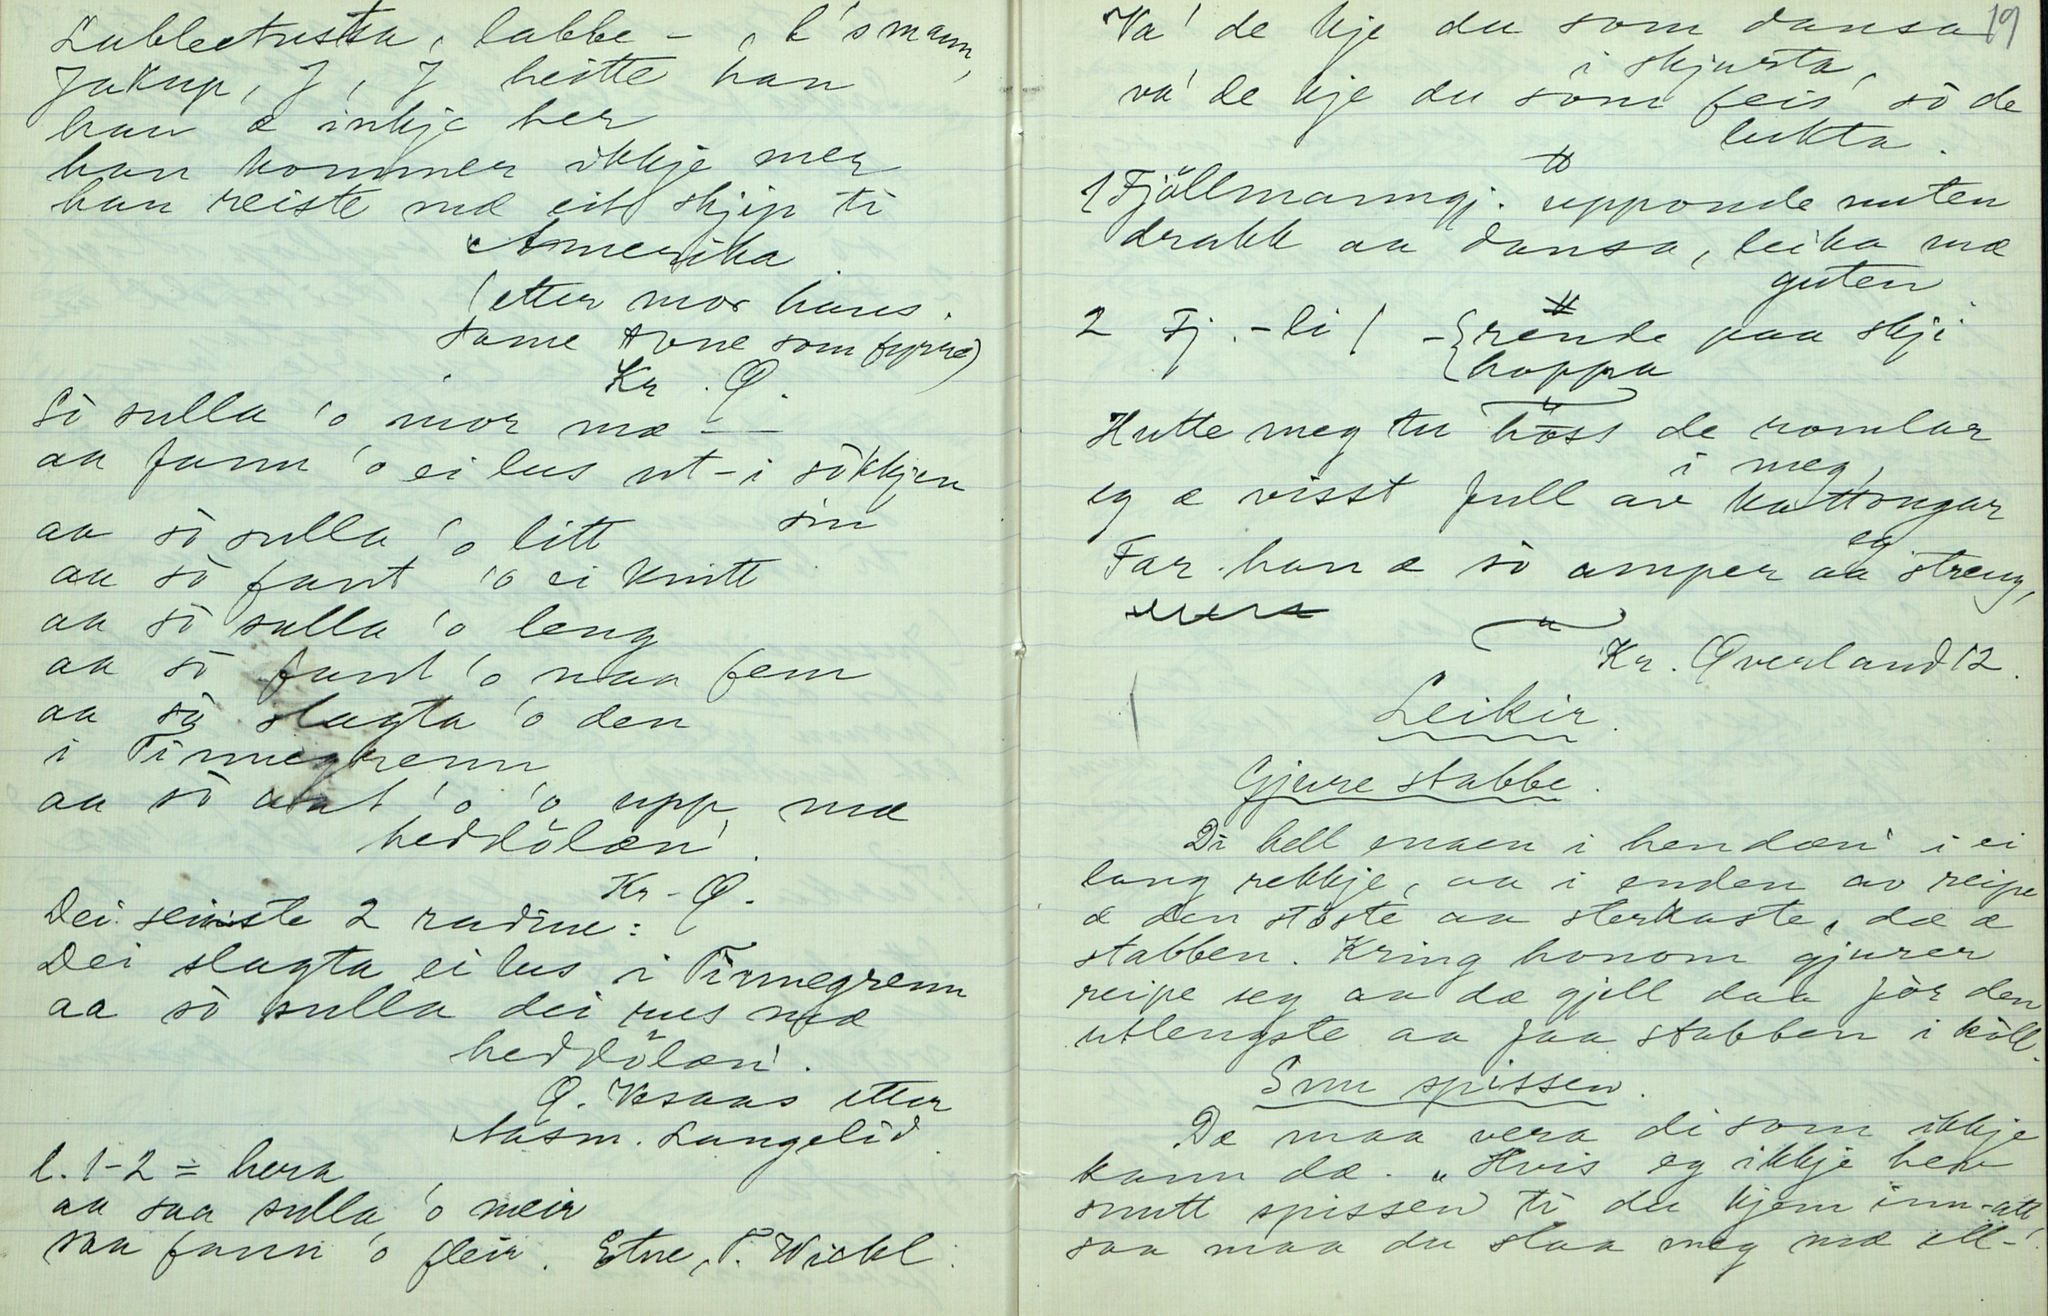 Lubbetussa, labbe - , l'smann,
Jakup, J, J heitte han
han æ inkje her
han kommer ikkje mer
han reiste mæ eit skjip ti
Amerika
(etter mor hans.
same tone som fyrre)
Kr. Ø.
Sò sulla 'o mor mæ - -
aa fann 'o ei lus ut-i sòkkjen
sin
aa sò sulla 'o litt
aa sò fant 'o ei knitt
aa sò sulla 'o leng
aa sò fant 'o naa fem
aa sò slagta 'o den
i Tinnegrenn
aa sò aat 'o 'o upp mæ
heddölæn'.
Kr. Ø.
Dei seinste 2 radine:
Dei slagta ei lus i Tinnegrenn
aa sò sulla dei rus mæ
heddölæn'.
Ø. Vesaas etter
Aasm. Langelid.
l. 1-2 = hera
aa saa sulla 'o meir
saa fann 'o fleir. Etne, T. Wichl.
19
Va' de kje du som dansa
i skjurta,
va' de kje du som feis sò de
lukta.
1 Fjöllmanngj. upponde nuten
drakk aa dansa, leika mæ
guten
2 Fj. - li / - { rende paa skji
{ hoppa
Hutte meg tu höss de romlar
i meg,
eg æ visst full av kattongar
Far han æ sò amper aa streng,
eg
Kr. Øverland 12.
Leikir.
Gjure stabbe.
Di hell enaen i hendæn' i ei
lang rekkje, aa i enden av reipe
æ den störste aa sterkaste, dæ æ
stabben. Kring honom gjurer
reipe seg aa dæ gjell daa för den
utlengste aa faa stabben iköll.
Snu spissen.
Dæ maa vera di som ikkje
kann dæ. "Hvis eg ikkje hev
snutt spissen ti du kjem inn-att
saa maa du slaa meg mæ ell-